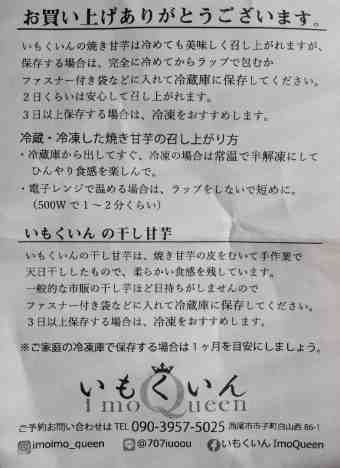 お買い上げありがとうございます。
いもくいんの焼き甘芋は冷めても美味しく召し上がれますが、
保存する場合は、完全に冷めてからラップで包むか
ファスナー付き袋などに入れて冷蔵庫に保存してください。
２日くらいは安心して召し上がれます。
３日以上保存する場合は、冷凍をおすすめします。
冷蔵・冷凍した焼き甘芋の召し上がり方
・冷蔵庫から出してすぐ、冷凍の場合は常温で半解凍にして
ひんやり食感を楽しんで。
・電子レンジで温める場合は、ラップをしないで短めに。
（500Wで１〜２分くらい）
いもくいん の干し甘芋
いもくいんの干し甘芋は、焼き甘芋の皮をむいて手作業で
天日干ししたもので、柔らかい食感を残しています。
一般的な市販の干し芋ほど日持ちがしませんので
ファスナー付き袋などに入れて冷蔵庫に保存してください。
３日以上保存する場合は、冷凍をおすすめします。
※ご家庭の冷凍庫で保存する場合は１ヶ月を目安にしましょう。
いもくいん
Imo Queen
ご予約お問い合わせは TEL 090-3957-5025 西尾市市子町白山西 86-1
imoimo_queen @707iuoou いもくいん ImoQueen